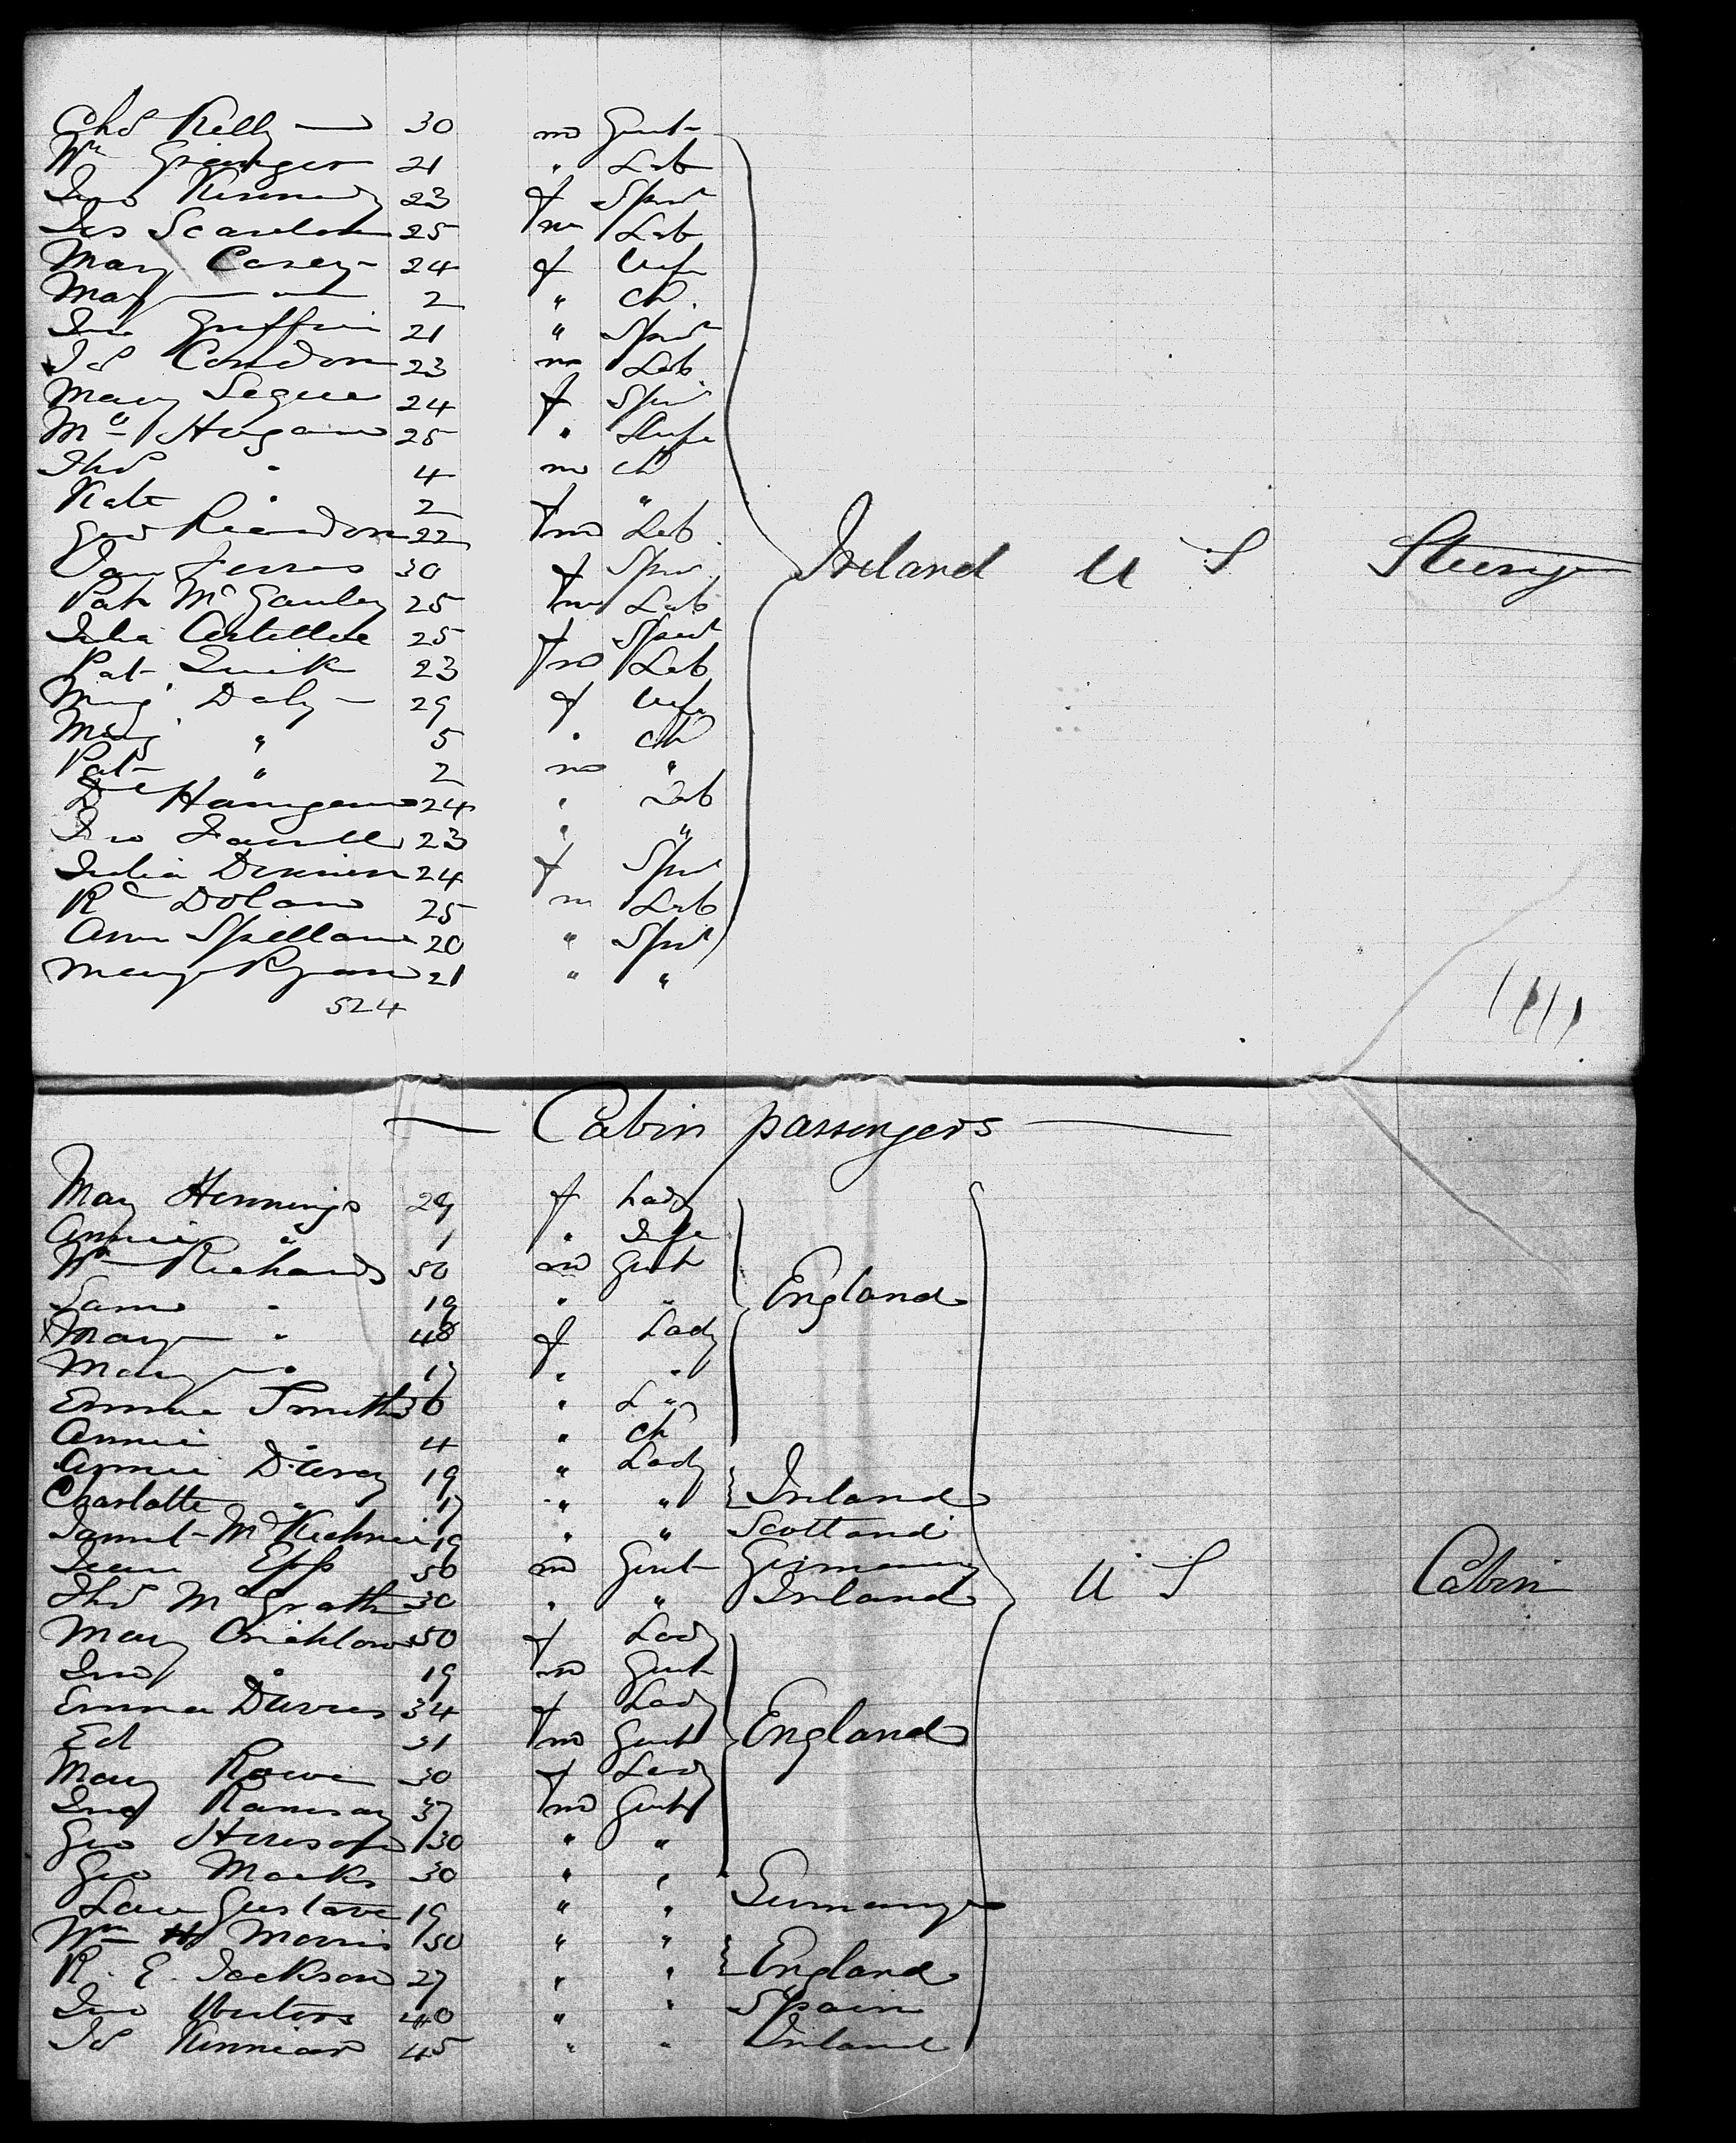 Chs Kelly — 30 m Gent
Wm 21 " Lab
Jno Kennedy 23 f Spinr
Jas Scanlon 25 m Lab
Mary Casey 24 f Wife
Mary — " — 2 " Ch
Jno Griffin 21 " Spinr
Js Condon 23 m Lab
Mary Segue 24 f Spinr
Ma Hogan 25 " Wife
Thos " 4 m Ch
Kate " 2 f "
Geo Reardon 22 m Lab
30 f Spinr
Pat McGauley 25 m Lab
Julia 25 f Spinr
Pat Quik 23 m Lab
Marg Daly 29 f Wife
Marg " 5 " Ch
Pat " 2 m "
Dl Hanigan 24 " Lab
Jno Farrell 23 " "
Julia 24 f Spinr
Rd Dolan 25 m Lab
Ann Spellan 20 " Spinr
Mary Ryan 21 " "
Ireland U S Steerage
524
— Cabin passengers —
Mary Hennings 29 f Lady
Annie " 1 " Infe
Wm Richards 50 m Gent
Saml " 19 " "
x Mary " 48 f Lady
England
Mary " 17 " "
Emma Smith 36 " L "
Annie " 4 " Ch
Annie D'Arcy 19 " Lady
Charlotte " 17 " " Ireland
Jannet McKechnie 19 " " Scotland
Epp 50 m Gent Germany
Thos McGrath 30 " " Ireland
U S Cabin
Mary Crichlow 50 f Lady
Jno " 19 m Gent
Emma Davies 34 f Lady
Ed 31 m Gent England
Mary Rowe 30 f Lady
Jno Ramsay 37 m Gent
Geo 30 " "
Geo Marks 30 " "
Gustave 19 " " Germany
Wm H Morris 50 " "
R. E. Jackson 27 " " England
Jno 40 " " Spain
Js Kinnear 45 " " Ireland